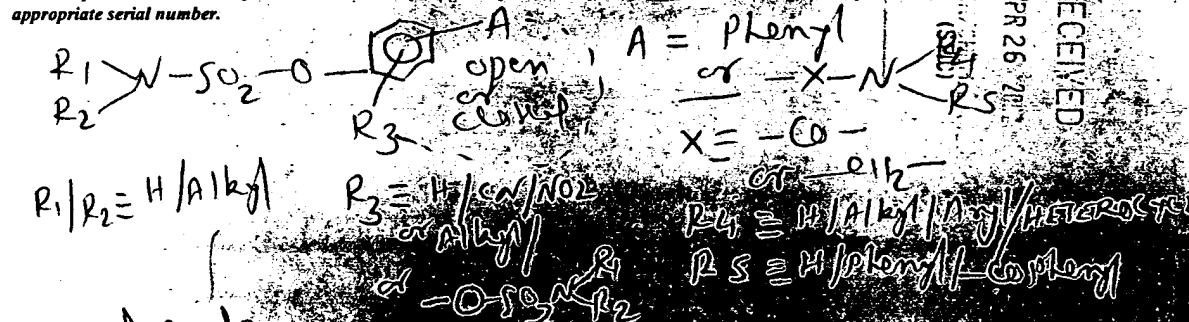 appropriate serial number.
R1
R2
N-SO2-O
A
open
or
closed
;
R3
A = Phenyl
or -X-N
R5
X ≡ -CO-
or -CH2-
R1/R2 ≡ H/Alkyl
R3 ≡ H/CN/NO2
or Alkyl/
or -O-SO2N
R1
R2
R4 ≡ H/Alkyl/Aryl/HETEROCY
R5 ≡ H/Phenyl/-COphenyl
RECEIVED
PR 26